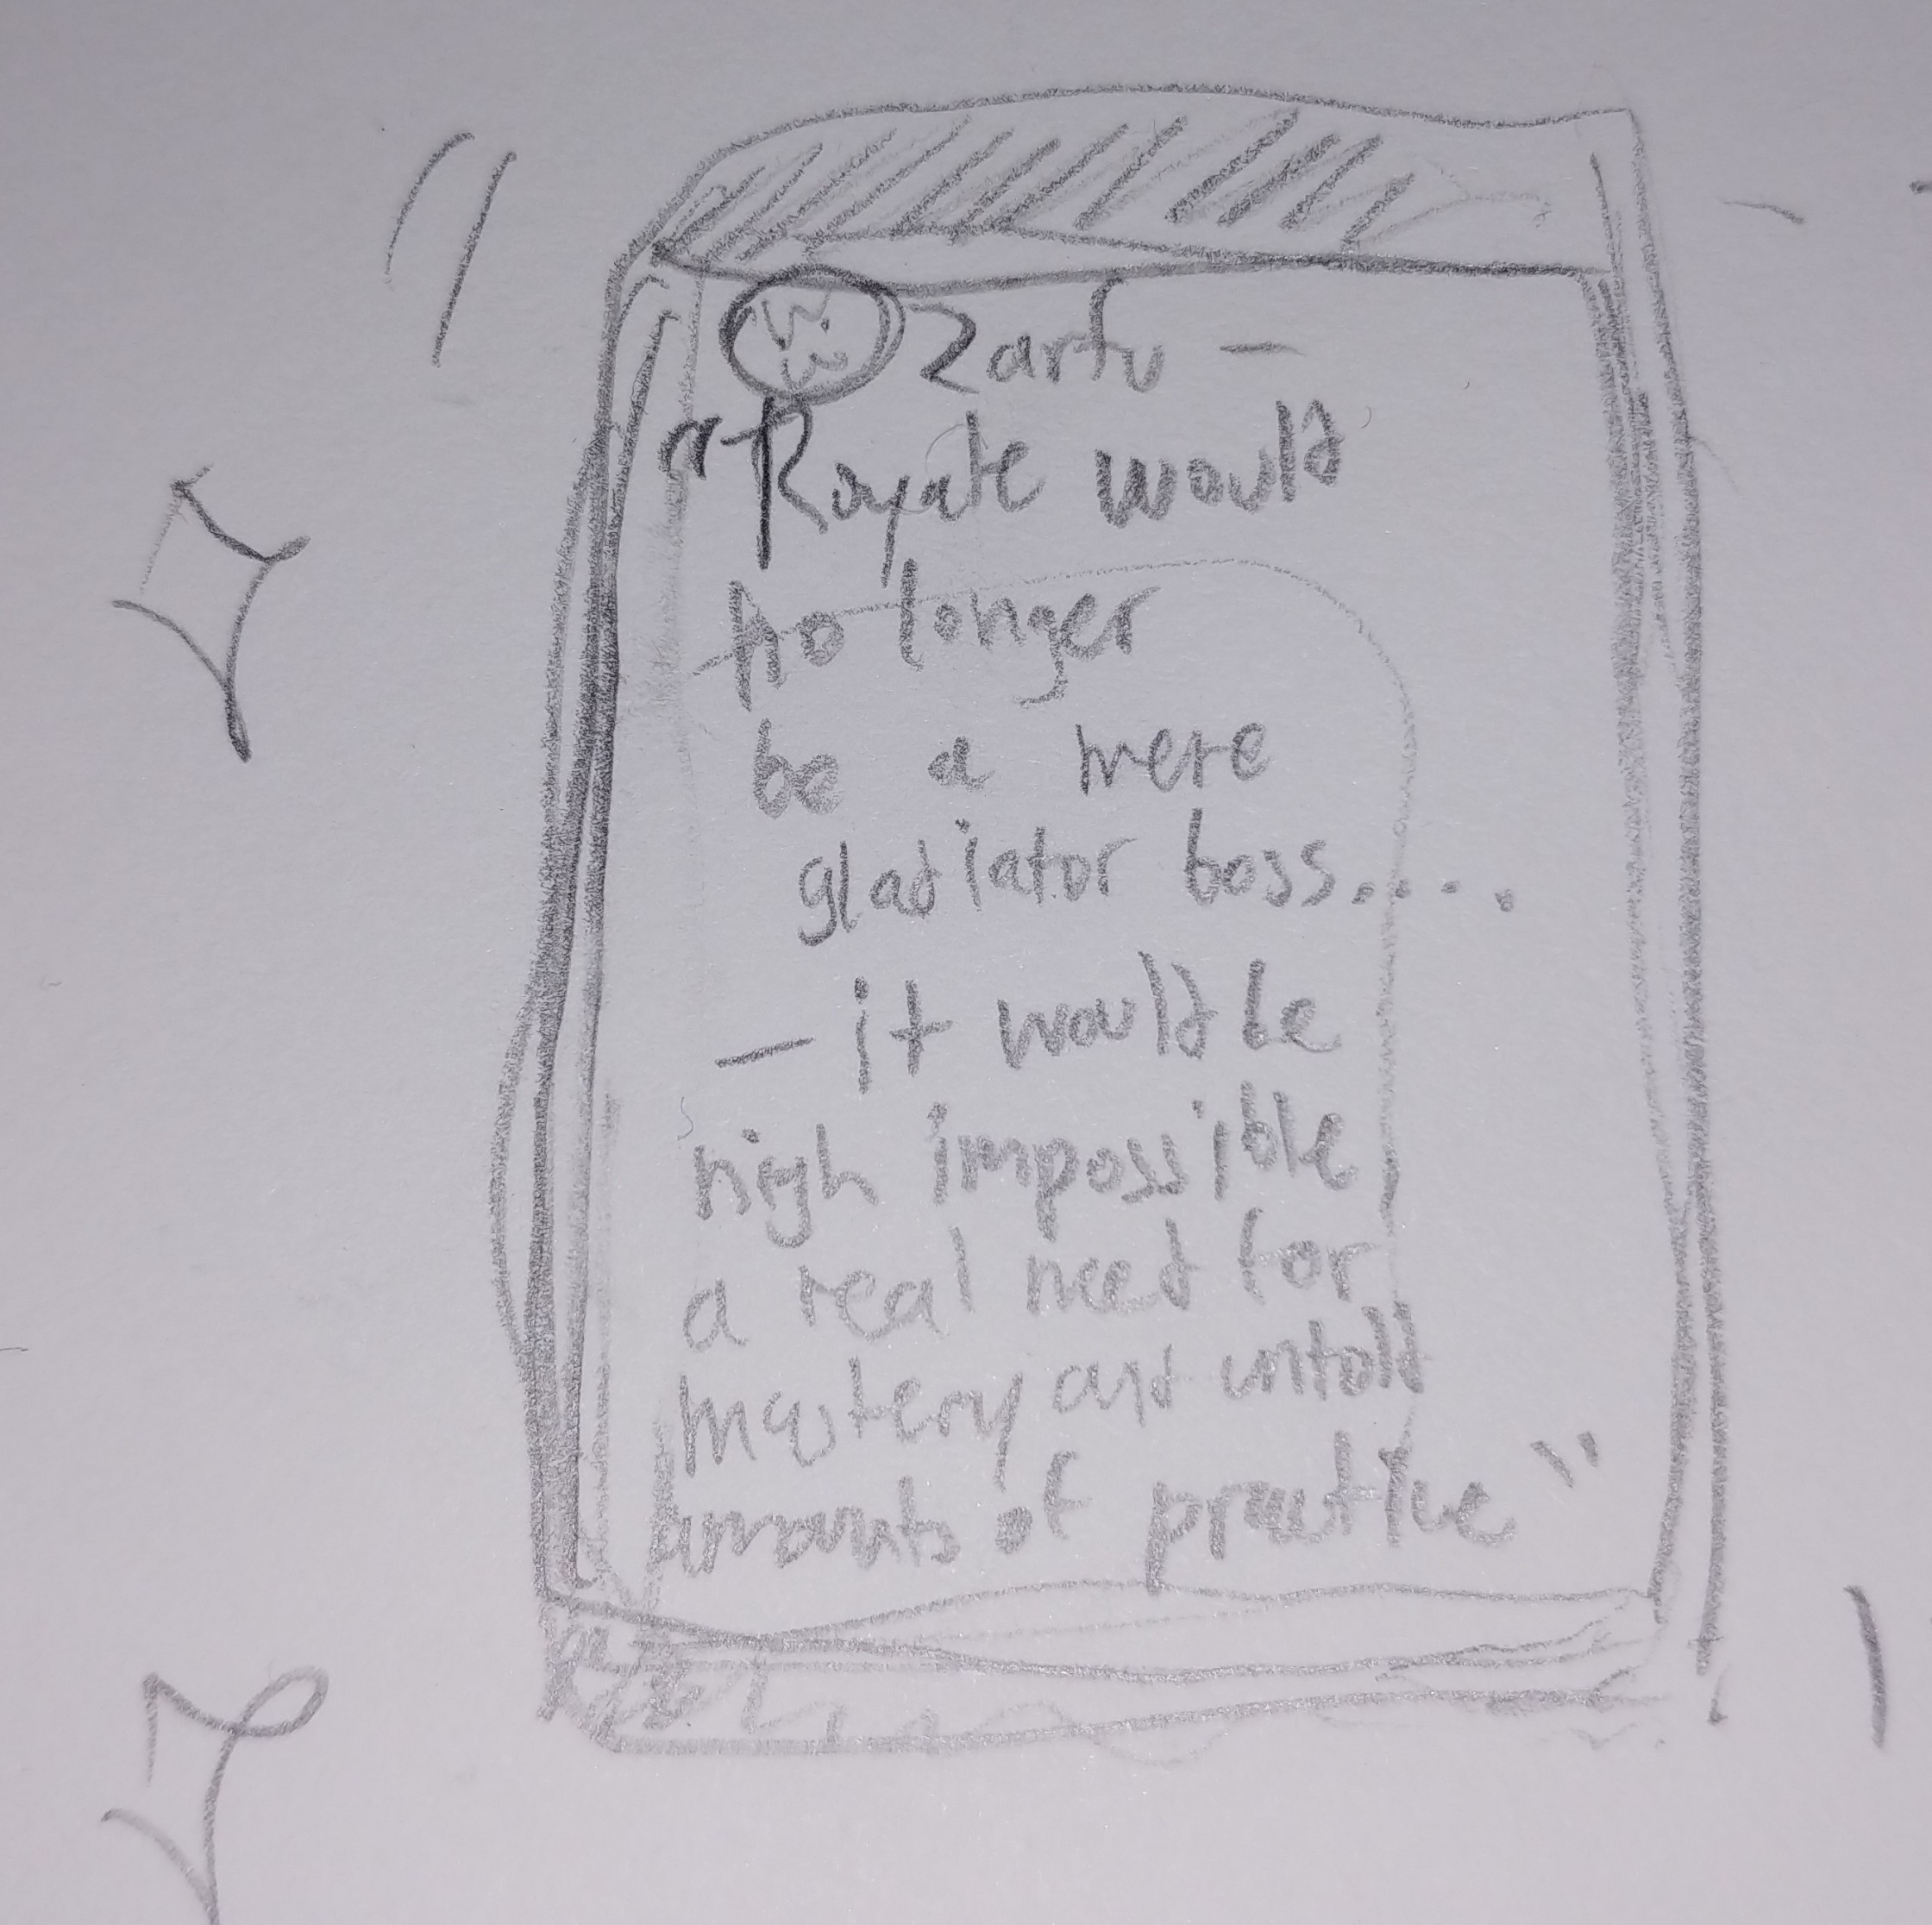 Zartu —
"Royate would
no longer
be a mere
gladiator boss....
— it would be
nigh impossible
a real need for
mastery and untold
amounts of practice"